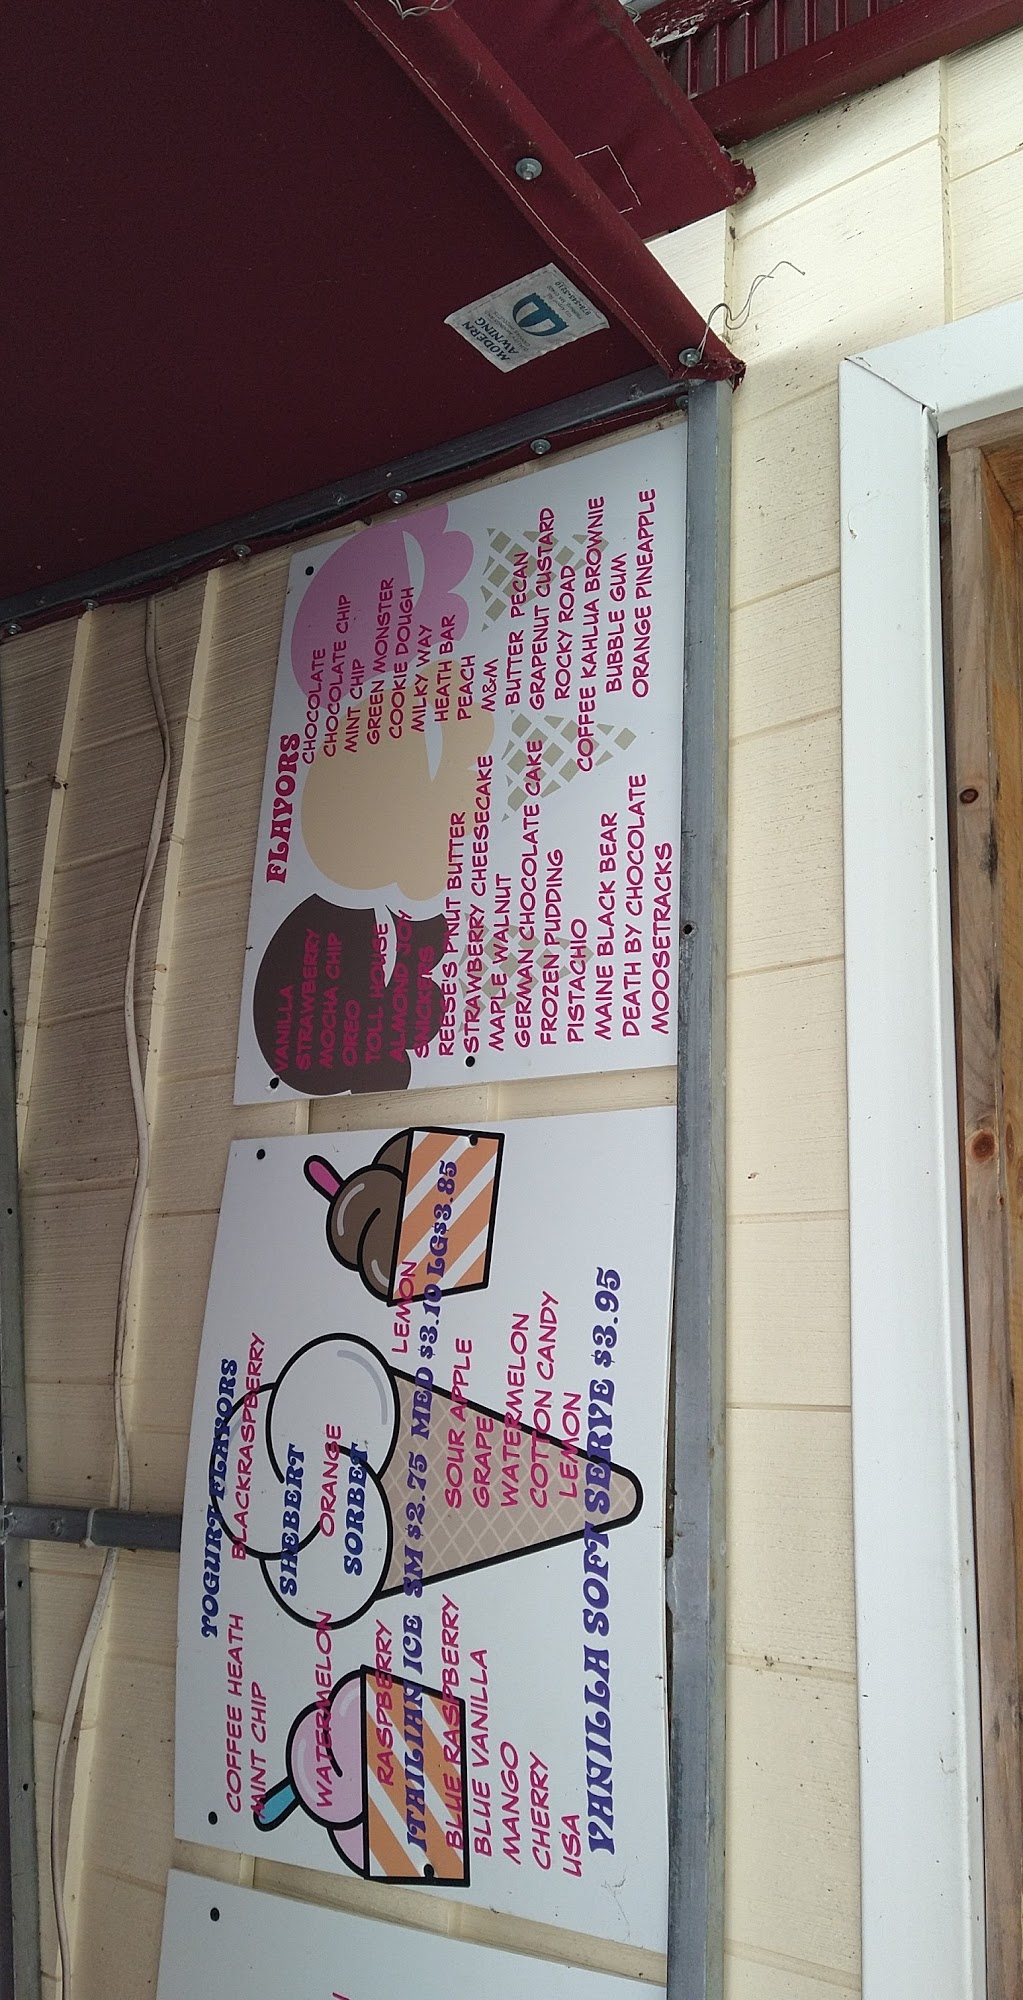 MODERN
AWNING
YOGURT FLAVORS
COFFEE HEATH BLACKRASPBERRY
MINT CHIP
SHEBERT
WATERMELON ORANGE
SORBET
RASPBERRY LEMON
ITAILIAN ICE SM $2.75 MED $3.10 LG$3.85
BLUE RASPBERRY SOUR APPLE
BLUE VANILLA GRAPE
MANGO WATERMELON
CHERRY COTTON CANDY
USA LEMON
VANILLA SOFT SERVE $3.95
FLAVORS
VANILLA CHOCOLATE
STRAWBERRY CHOCOLATE CHIP
MOCHA CHIP MINT CHIP
OREO GREEN MONSTER
TOLL HOUSE COOKIE DOUGH
ALMOND JOY MILKY WAY
SNICKERS HEATH BAR
REESE'S P'NUT BUTTER PEACH
STRAWBERRY CHEESECAKE M&M
MAPLE WALNUT BUTTER PECAN
GERMAN CHOCOLATE CAKE GRAPENUT CUSTARD
FROZEN PUDDING ROCKY ROAD
PISTACHIO COFFEE KAHLUA BROWNIE
MAINE BLACK BEAR BUBBLE GUM
DEATH BY CHOCOLATE ORANGE PINEAPPLE
MOOSETRACKS